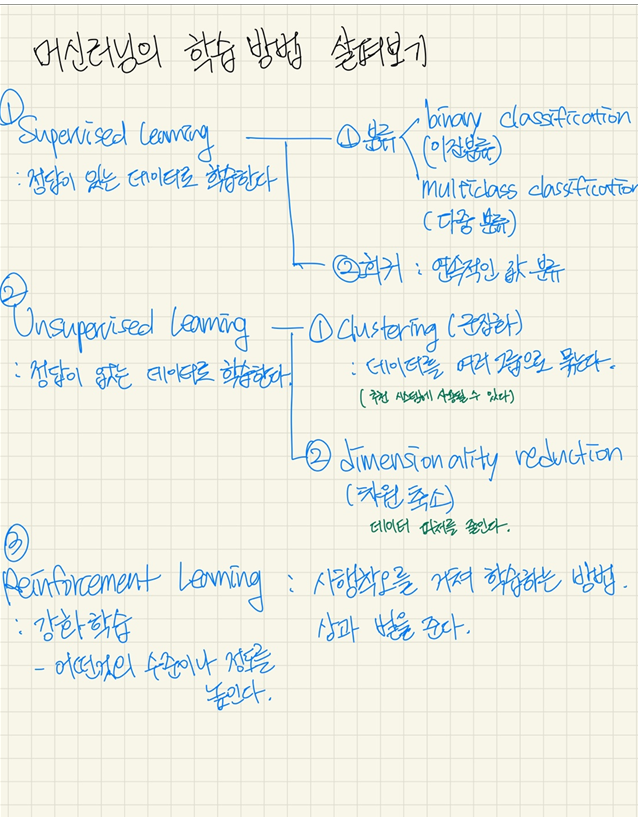 머신러닝의 학습 방법 살펴보기
① Supervised Learning
: 정답이 있는 데이터로 학습한다
① 분류
binary classification
(이진분류)
multiclass classification
(다중 분류)
② 회귀 : 연속적인 값 분류
② Unsupervised Learning
: 정답이 없는 데이터로 학습한다.
① Clustering (군집화)
: 데이터를 여러 그룹으로 묶는다.
(추천 시스템에 사용될 수 있다)
② dimensionality reduction
(차원 축소)
데이터 피처를 줄인다.
③ Reinforcement Learning : 시행착오를 거쳐 학습하는 방법.
: 강화학습
상과 벌을 준다.
- 어떤것의 수준이나 정도를
높인다.